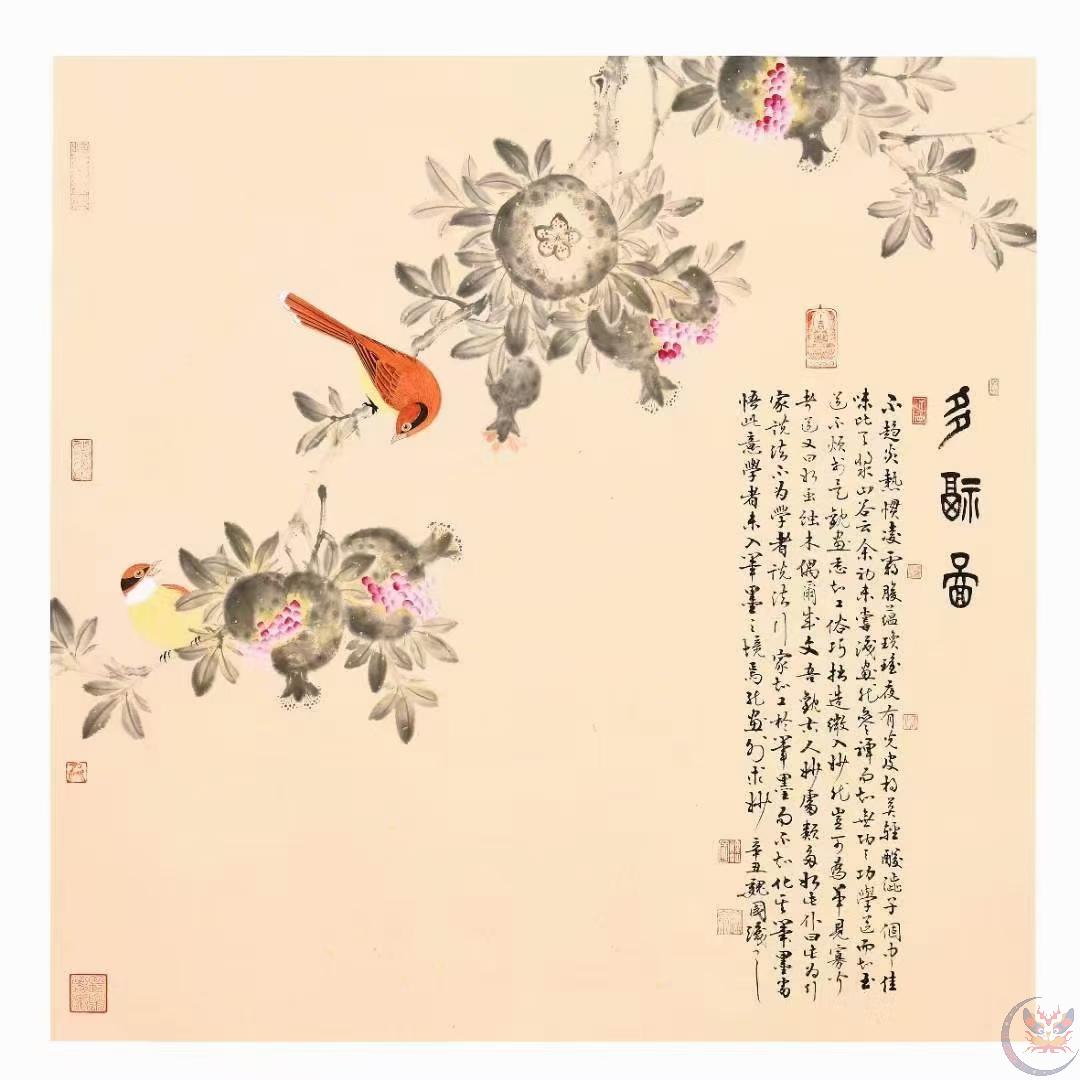 多啚
不趨炎熱慣凌霜腹蘊瓊瑤夜有光皮相莫輕酸澁子個中佳
味比天漿山谷云余初未嘗識畫然參禪而知無功之功學道而知至
道不煩於是觀畫悉知工俗巧拙造微入妙然豈可為單見寡聞
者道又曰如虫蝕木偶爾成文吾觀古人妙處類多如此仆曰此為行
家説法不為學者説法行家知工於筆墨而不知化其筆墨當
悟此意學者未入筆墨之境焉能畫外求妙 辛丑魏國